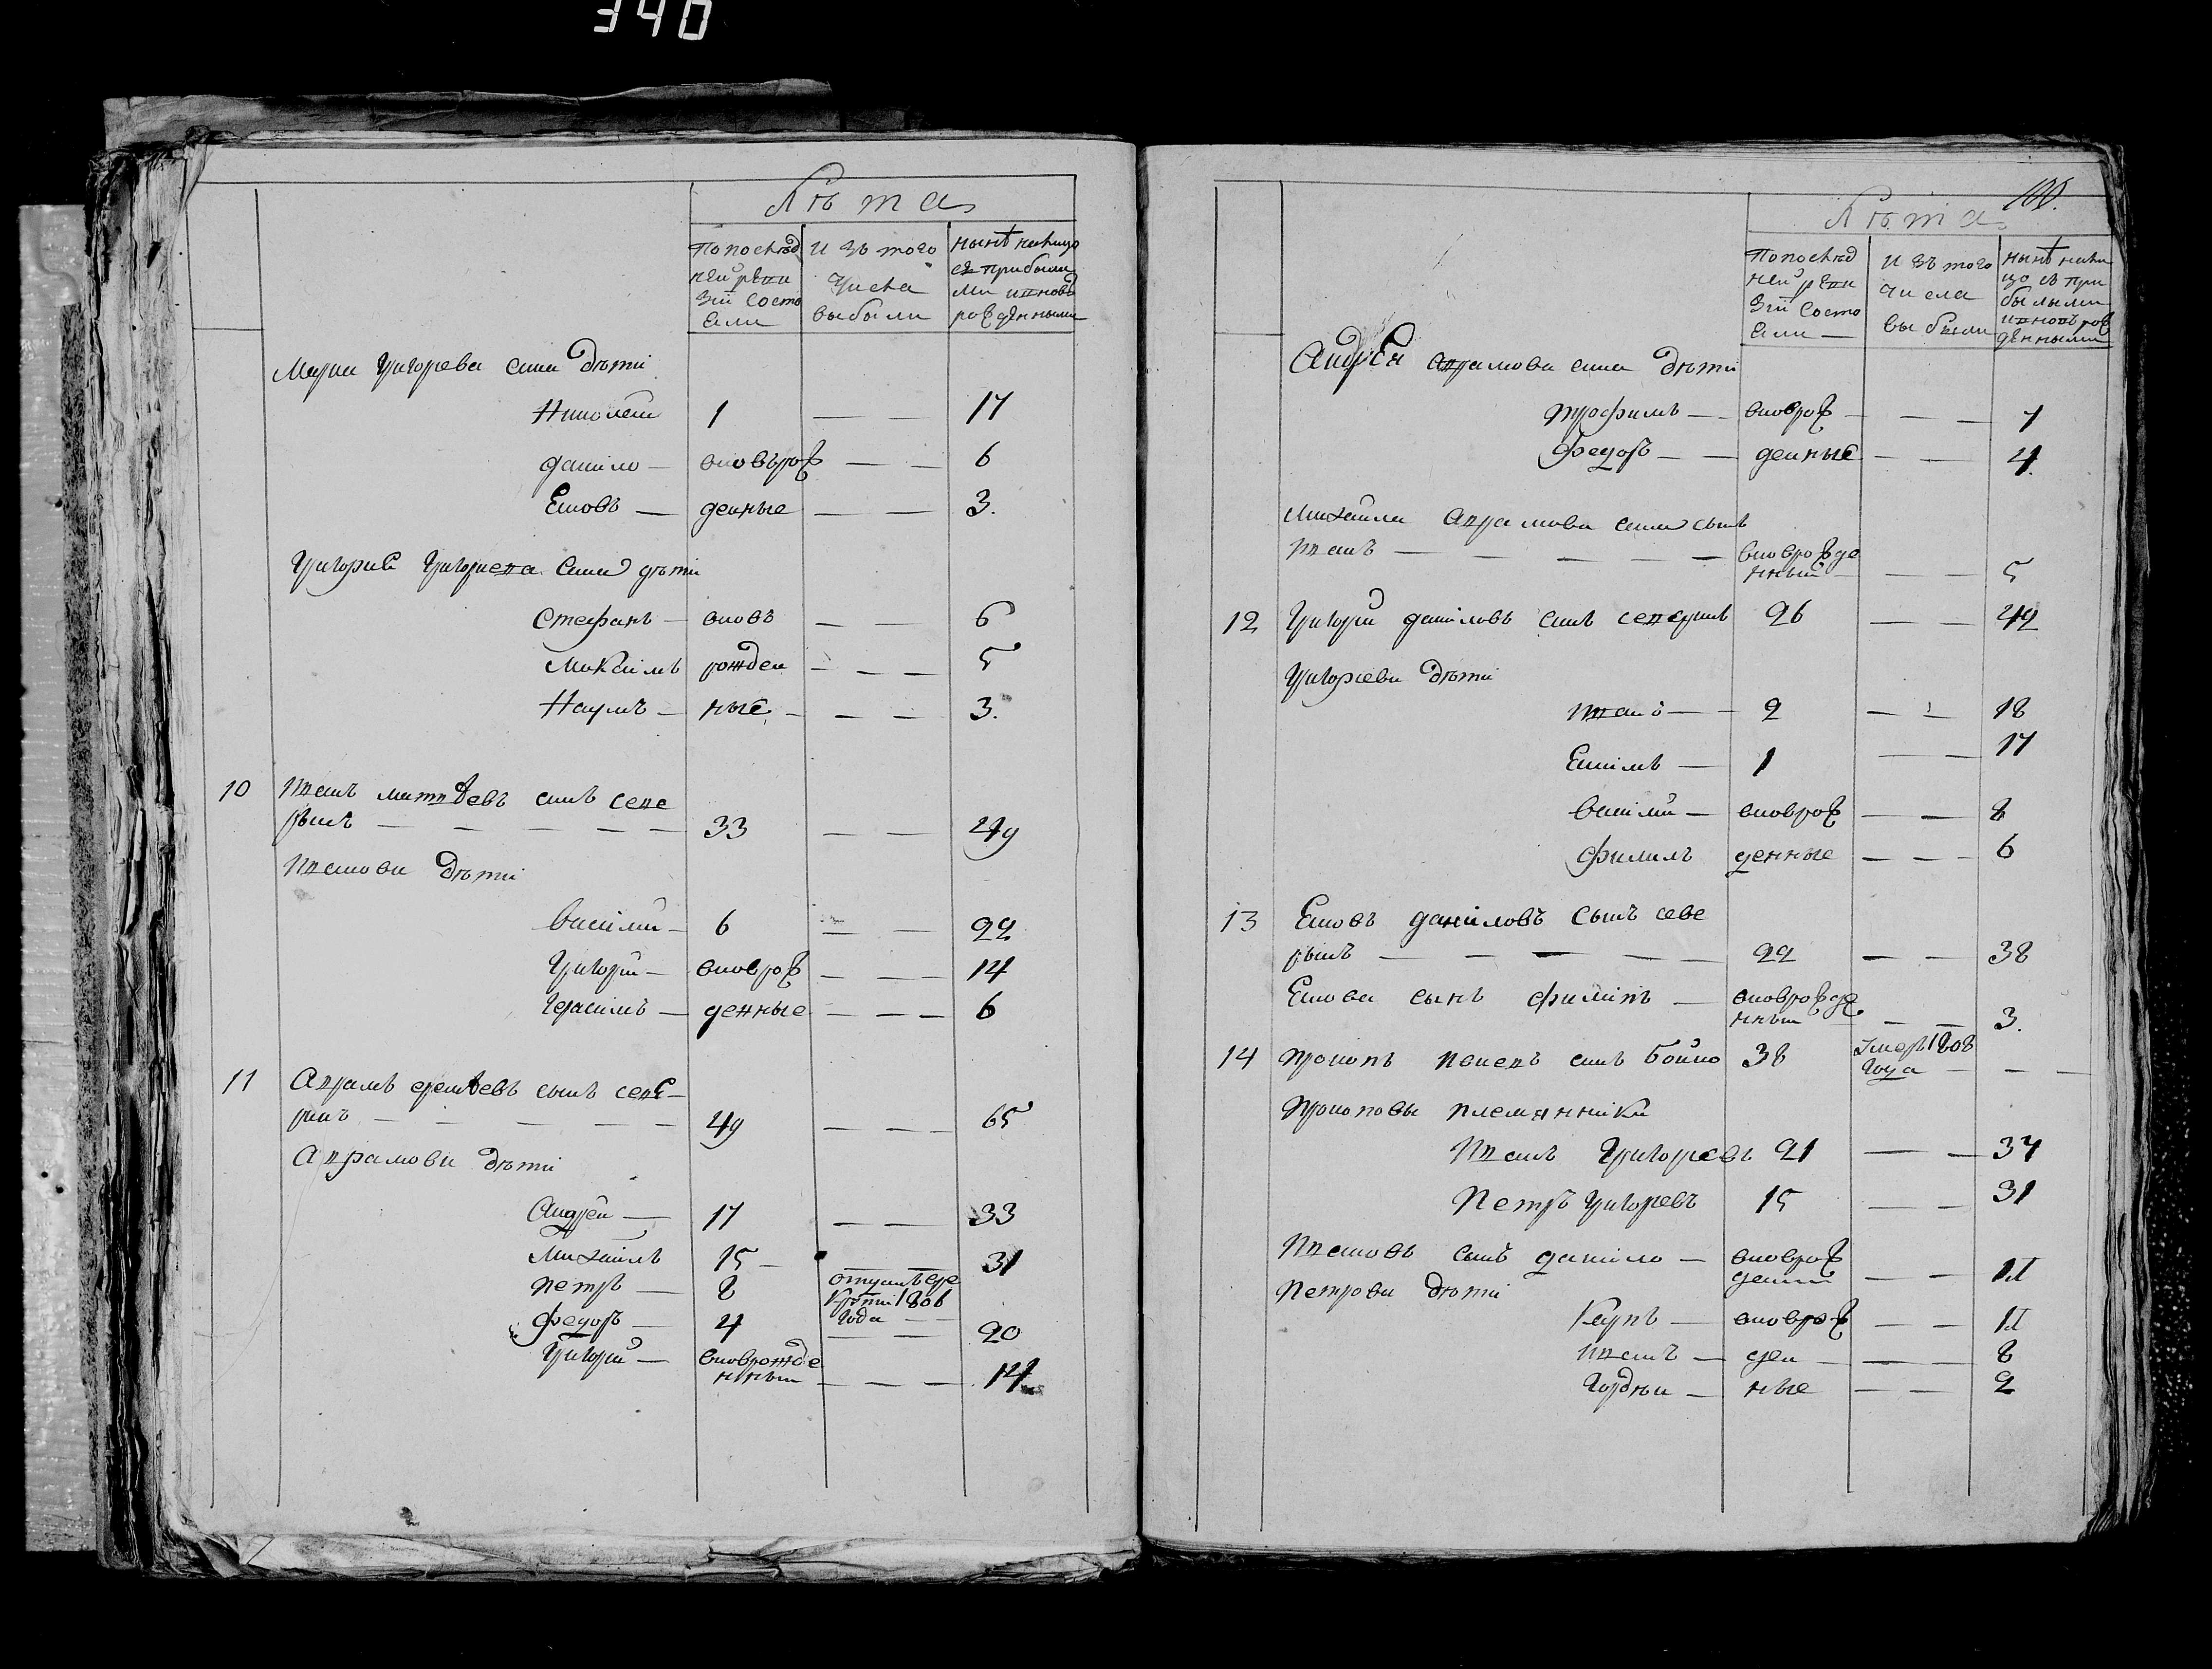 340
Лѣта
По послѣд
ней реви
зіи состо
яли
Изъ того
числа
выбыли
нынѣ на лицо
съ прибыли
ми и вновь
рожденными
Марка Григорева сина дѣти
Николай 1 — — 17
данило — вновърож — — 6
Яковъ — денные — — 3.
Григорія Григориева сина дѣти
Стефанъ — вновъ — — 6
Максимъ рожден — — — 5
Наумъ — ные — — — 3.
10 Иванъ матвѣевъ синъ севе
рынъ — — — — — 33 — — 49
Иванови дѣти
василий — 6 — — 22
Григорій — вноврож — — — 14
Герасимъ — денные — — — 6
11 Аврамъ еремѣевъ сынъ севе—
ринъ — — — — — 49 — — — 65
Аврамови дѣти
Андрей — 17 — — 33
Михаилъ 15 — — 31
Петръ — 8 отданъ въ ре
круты 1806
года —
Федоръ — 4 — — 20
Григорій — вноврожде
нный — — — 14
100.
Лѣта
По послѣд
ней реви
зіи состо
яли —
Изъ того
числа
выбыли
нынѣ нали
цо съ при
былыми
и вновъ рож
денными
Андрея аврамова сина дѣти
трофимъ — вноврож — — — 7
Федоръ — — денные — — — 4.
Михаила аврамова сина сынъ
Иванъ — — — — — вноврожде
нный — — — 5
12 Григорій даниловъ синъ северинъ 26 — — 42
Григориеви дѣти
Иванъ — — 2 — — 18
Екимъ — 1 — — 17
василий — вноврож — — 8
Филипъ денные — — — 6
13 Яковъ даниловъ сынъ севе
рынъ — — — — — 22 — — 38
Якова сынъ филипъ — вноврожде
нный — — 3.
14 прокопъ ивановъ синъ бойко 38 умеръ 1808
года — — —
прокоповы племянники
Иванъ Григоревъ 21 — — 37
Петръ Григоревъ 15 — — 31
Ивановъ сынъ данило — вноврож
денни — — 11
Петрови дѣти
Карпъ — вноврож — — 11
Иванъ — ден — — — 8
Гордѣй — ные — — 2